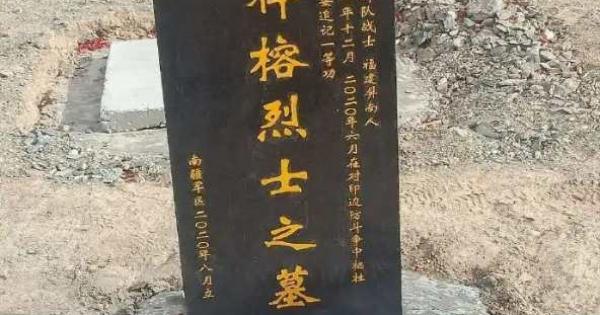 队战士 福建屏南人
年十二月 二〇二〇年六月在对印边防斗争中牺牲
委追记一等功
祥榕烈士之墓
南疆军区二〇二〇年八月立